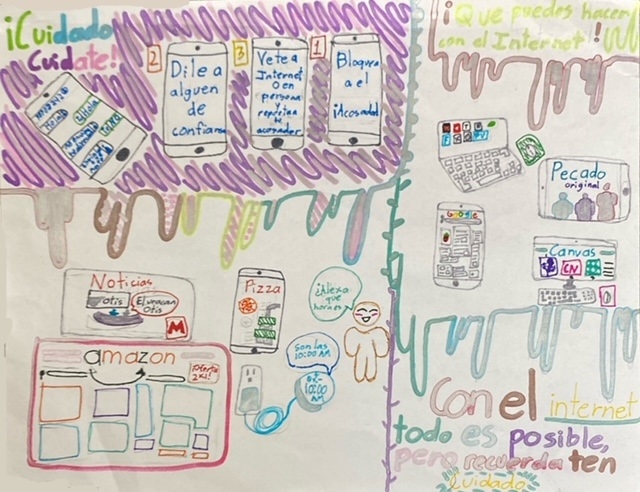 ¡Cuidado
Cuidate!
2
Dile a
alguen
de
confianza
3
Vete a
Internet
o en
persona
y
reporta
acosador
1
Bloquea
a el
¡Acosador!
¡Que puedes hacer
con el Internet!
Google
Pecado
original
Canvas
CN
Noticias
otis
El uracan
Otis
M
Pizza
¿Alexa
que
hora es?
Son las
10:00 AM
10:00
AM
amazon
¡Oferta
2x1!
Con el internet
todo es posible,
pero recuerda ten
Cuidado